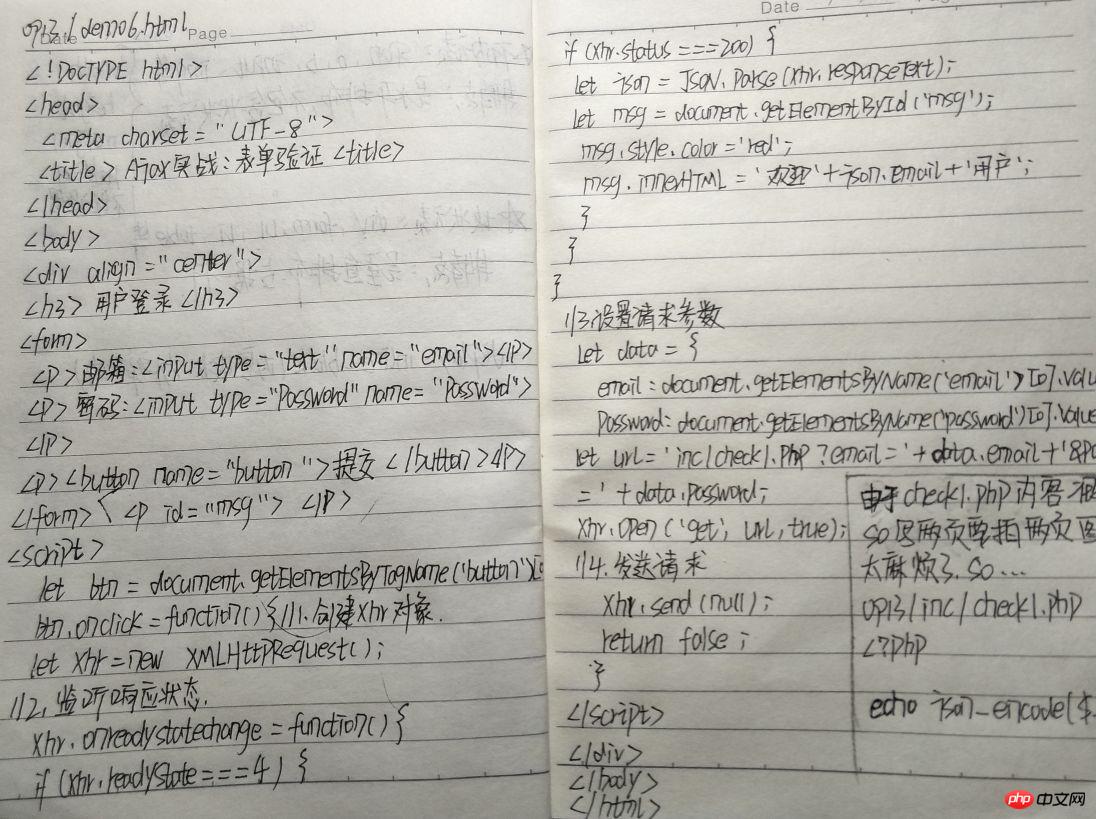 0713.6 demo6.html
Date Page
<!DOCTYPE html>
<head>
<meta charset="UTF-8">
<title>Ajax实战:表单验证<title>
</head>
<body>
<div align="center">
<h3>用户登录</h3>
<form>
<p>邮箱:<input type="text" name="email"></p>
<p>密码:<input type="Password" name="Password">
</p>
<p><button name="button">提交</button></p>
</form> <p id="msg"> </p>
<script>
let btn = document.getElementsByTagName('button')[
btn.onclick = function(){//1.创建xhr对象.
let xhr = new XMLHttPRequest();
//2,监听响应状态.
xhr.onreadystatechange = function(){
if (xhr.readyState===4) {
Date
if (xhr.status===200) {
let json = JSON.Parse(xhr.responseText);
let msg = document.getElementById('msg');
msg.style.color='red';
msg.innerHTML = '欢迎'+json.email+'用户';
}
}
}
//3.设置请求参数
let data = {
email:document.getElementsByName('email')[0].valu
Password:document.getElementsByName('password')[0].value
let url='inc/check1.php?email='+data.email+'&pa
='+data.password;
xhr.open('get', url,true);
//4.发送请求
xhr.send(null);
return false;
}
</script>
</div>
</body>
</html>
由于check1.php内容
so 写两页要拍两页
太麻烦了.so...
0713/inc/check1.php
<?php
echo json_encode($
php 中文网